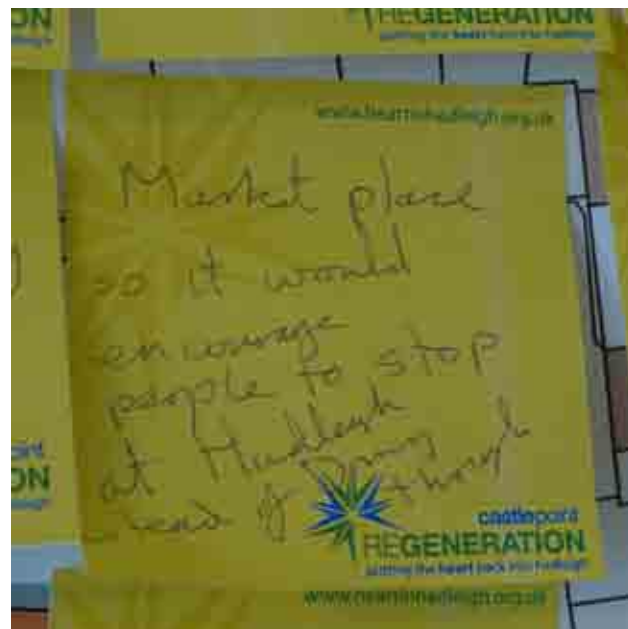 ON
REGENERATION
putting the heart back into hadleigh
www.heartinhadleigh.org.uk
Market place
so it would
encourage
people to stop
at Hadleigh
instead of Driving through
castlepoint
REGENERATION
putting the heart back into hadleigh
point
ON
www.heartinhadleigh.org.uk